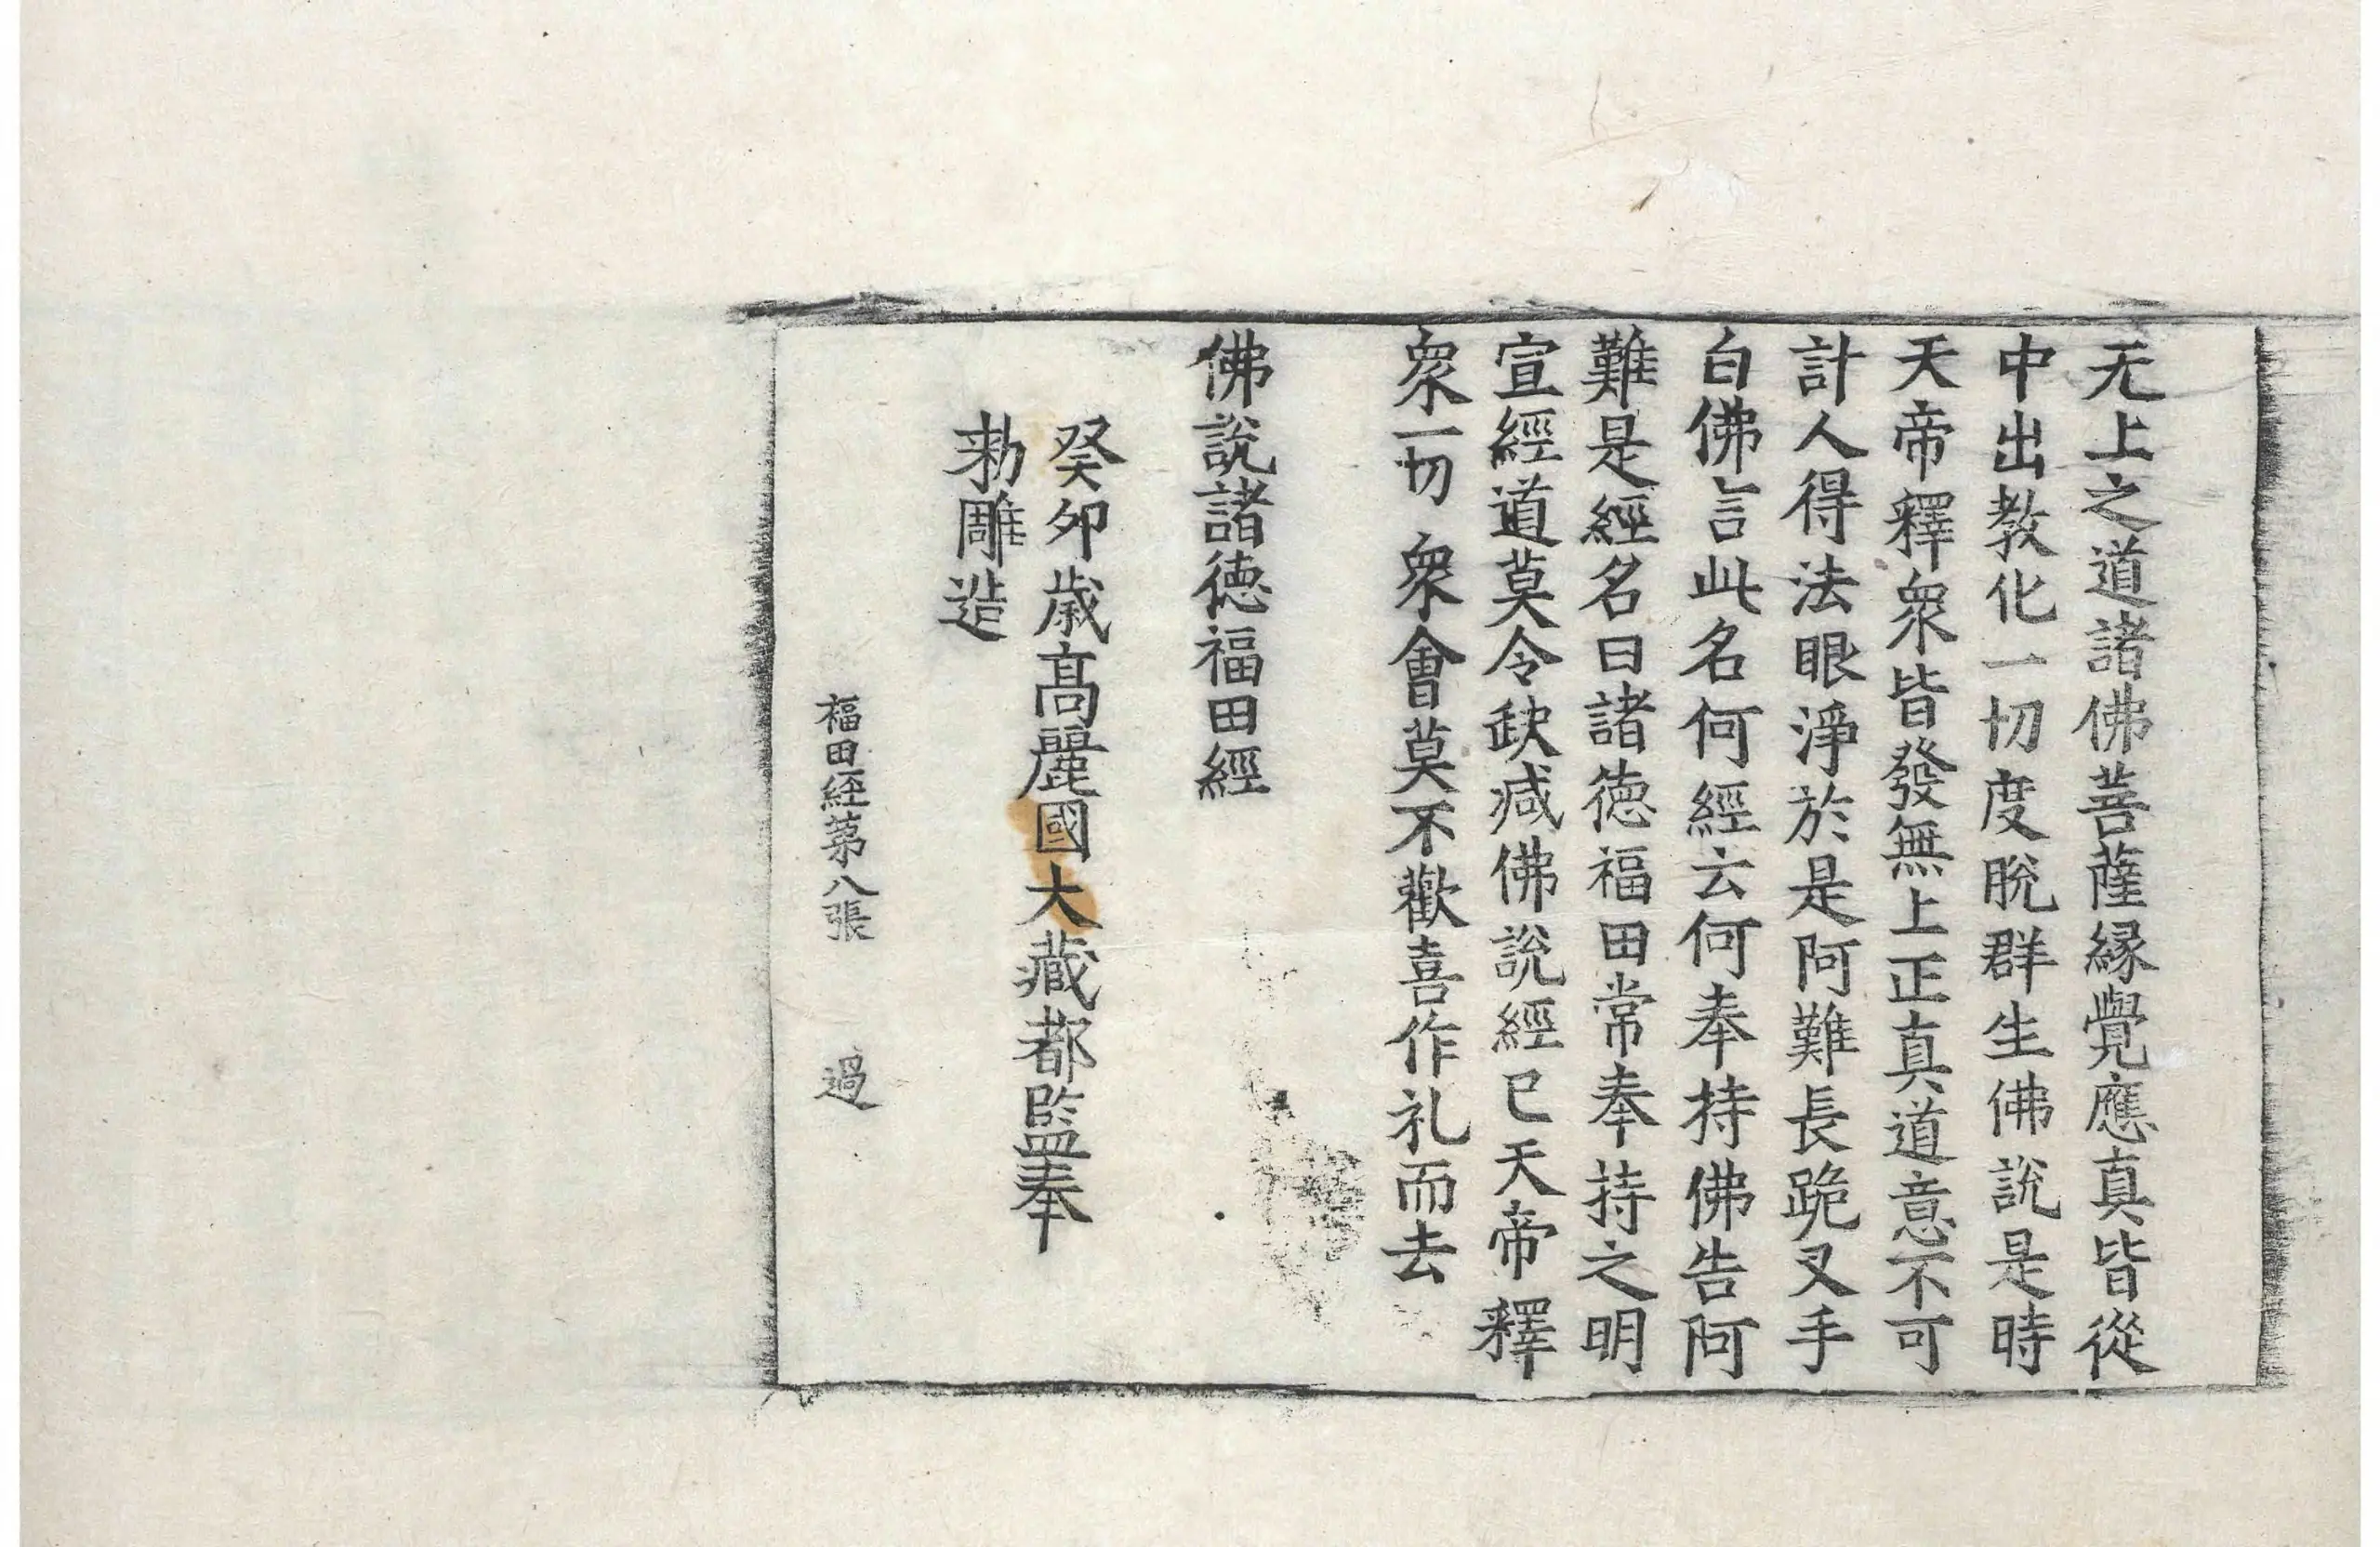 无上之道諸佛菩薩縁覺應真皆從
中出教化一切度脫群生佛說是時
天帝釋衆皆發無上正真道意不可
計人得法眼淨於是阿難長跪叉手
白佛言此名何經云何奉持佛告阿
難是經名曰諸德福田常奉持之明
宣經道莫令缺减佛說經已天帝釋
衆一切衆會莫不歡喜作礼而去
佛說諸徳福田經
癸卯歲高麗國大藏都監奉
勑雕造
福田経苐八張 過